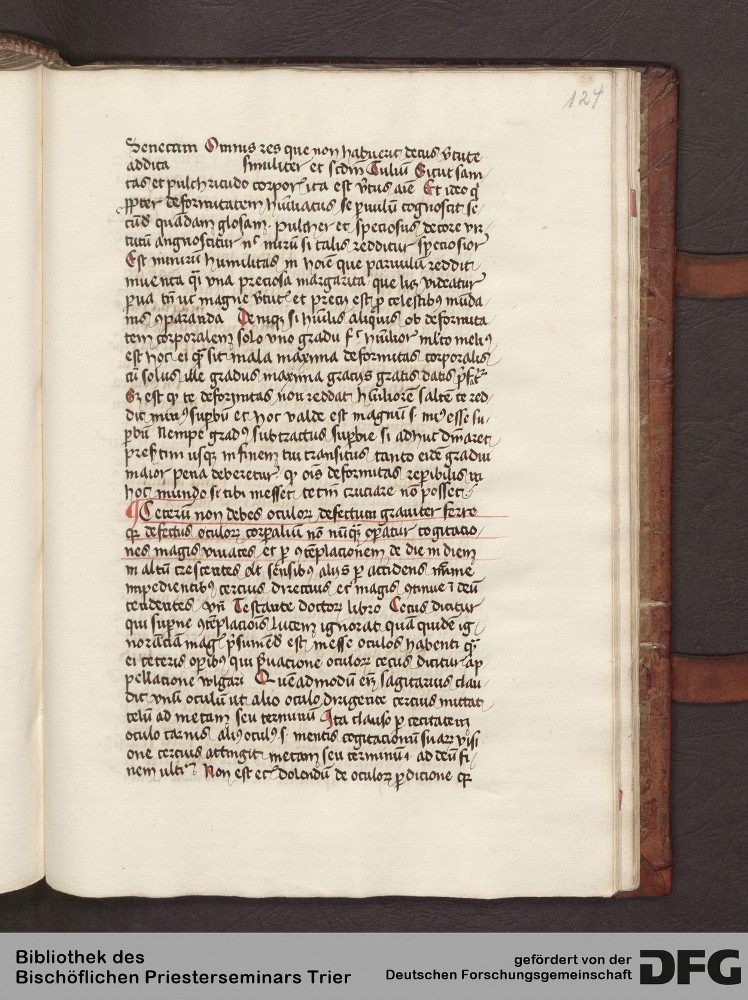 124
Senecam Omnis res que non habuerit decus vtute
addita similiter et scdm Tuliu Sicut sani
tas et pulchritudo corpor ita est vtus aie Et ideo q
ppter deformitatem humiliatus se puulu cognoscit se
cud quadam glosam pulcher et speciosus decore vir
tutu angnoscitur nc miru si talis redditur speciosior
Est miniru humilitas in hoie que paruulu reddit
inuenta qi vna preciosa margarita que lic videatur
pua tn ut magne vtut et precij est p celestibus munda
nis 9paranda Deniq si huilis aliquis ob deformita
tem corporalem solo vno gradu humilior mlto melius
est hoc ei q sit mala maxima deformitas corporalis
cu solus ille gradus maxima gracijs gratis datis
est te deformitas non reddat humiliore saltem te red
dit minus supbu et hoc valde est magnu s minus esse su
pbu Nempe gradus subtractus supbie si adhuc
presertim usq in finem tui transitus tanto eide gradui
maior pena deberetur q ois deformitas repibilis in
hoc mundo si tibi inesset te tm cruciare no posset
Ceteru non debes oculor defectum grauiter ferre
qr defectus oculor corpaliu no nuq opatur cogitacio
nes magis viuaces et p 9teplacionem de die in diem
in altu crescentes sensibus alijs p accidens mime
impedientibus cercius directius et magis 9tinue i deu
tendentes vn Testante doctor libro Cecus dicitur
qui supne 9teplaciois lucem ignorat qua quide ig
norancia mag psumed est inesse oculos habenti q
ei ceteris opibus qui puacione oculor cecus dicitur ap
pellacione wlgari Queadmodu em sagitarius clau
dit vnu oculu ut alio oculo dirigente cercius mittat
telu ad metam seu terminu Ita clauso p cecitatem
oculo carnis alius oculus s mentis cogitacionu suar visi
one cercius attingit metam seu terminu i ad deu fi
nem ulti Non est ec dolendu de oculor pdicione qr
Bibliothek des
Bischöflichen Priesterseminars Trier
gefördert von der
Deutschen Forschungsgemeinschaft
DFG